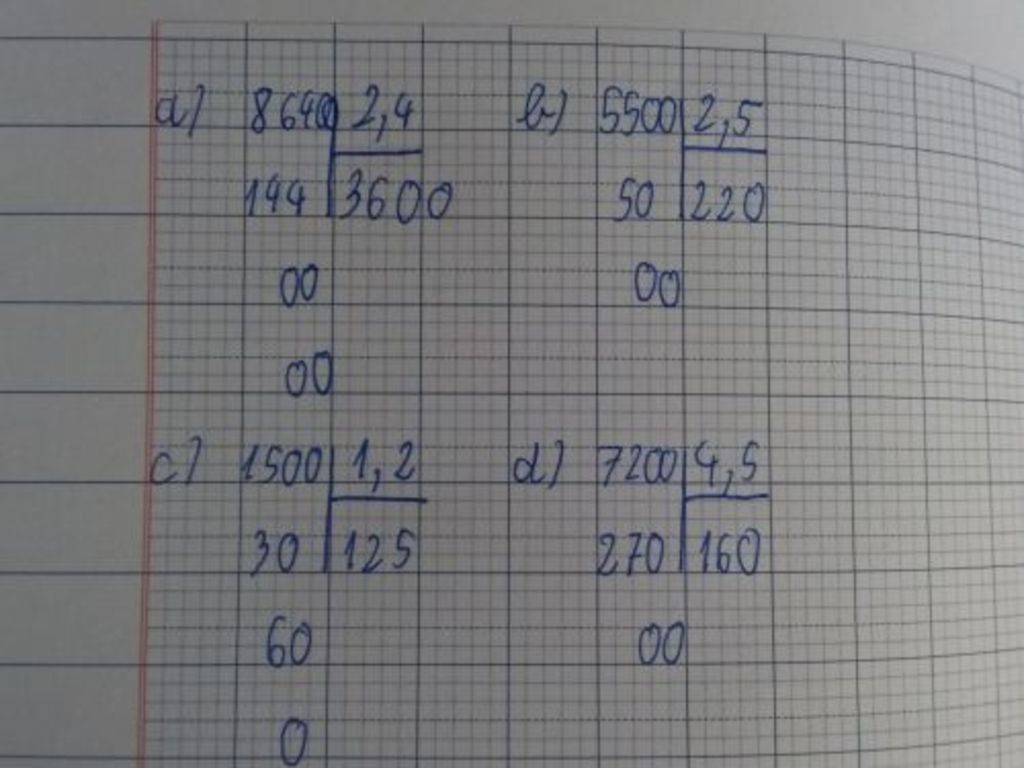 a) 8640 2,4
144 3600
00
00
b) 5500 2,5
50 220
00
c) 1500 1,2
30 125
60
0
d) 7200 4,5
270 160
00